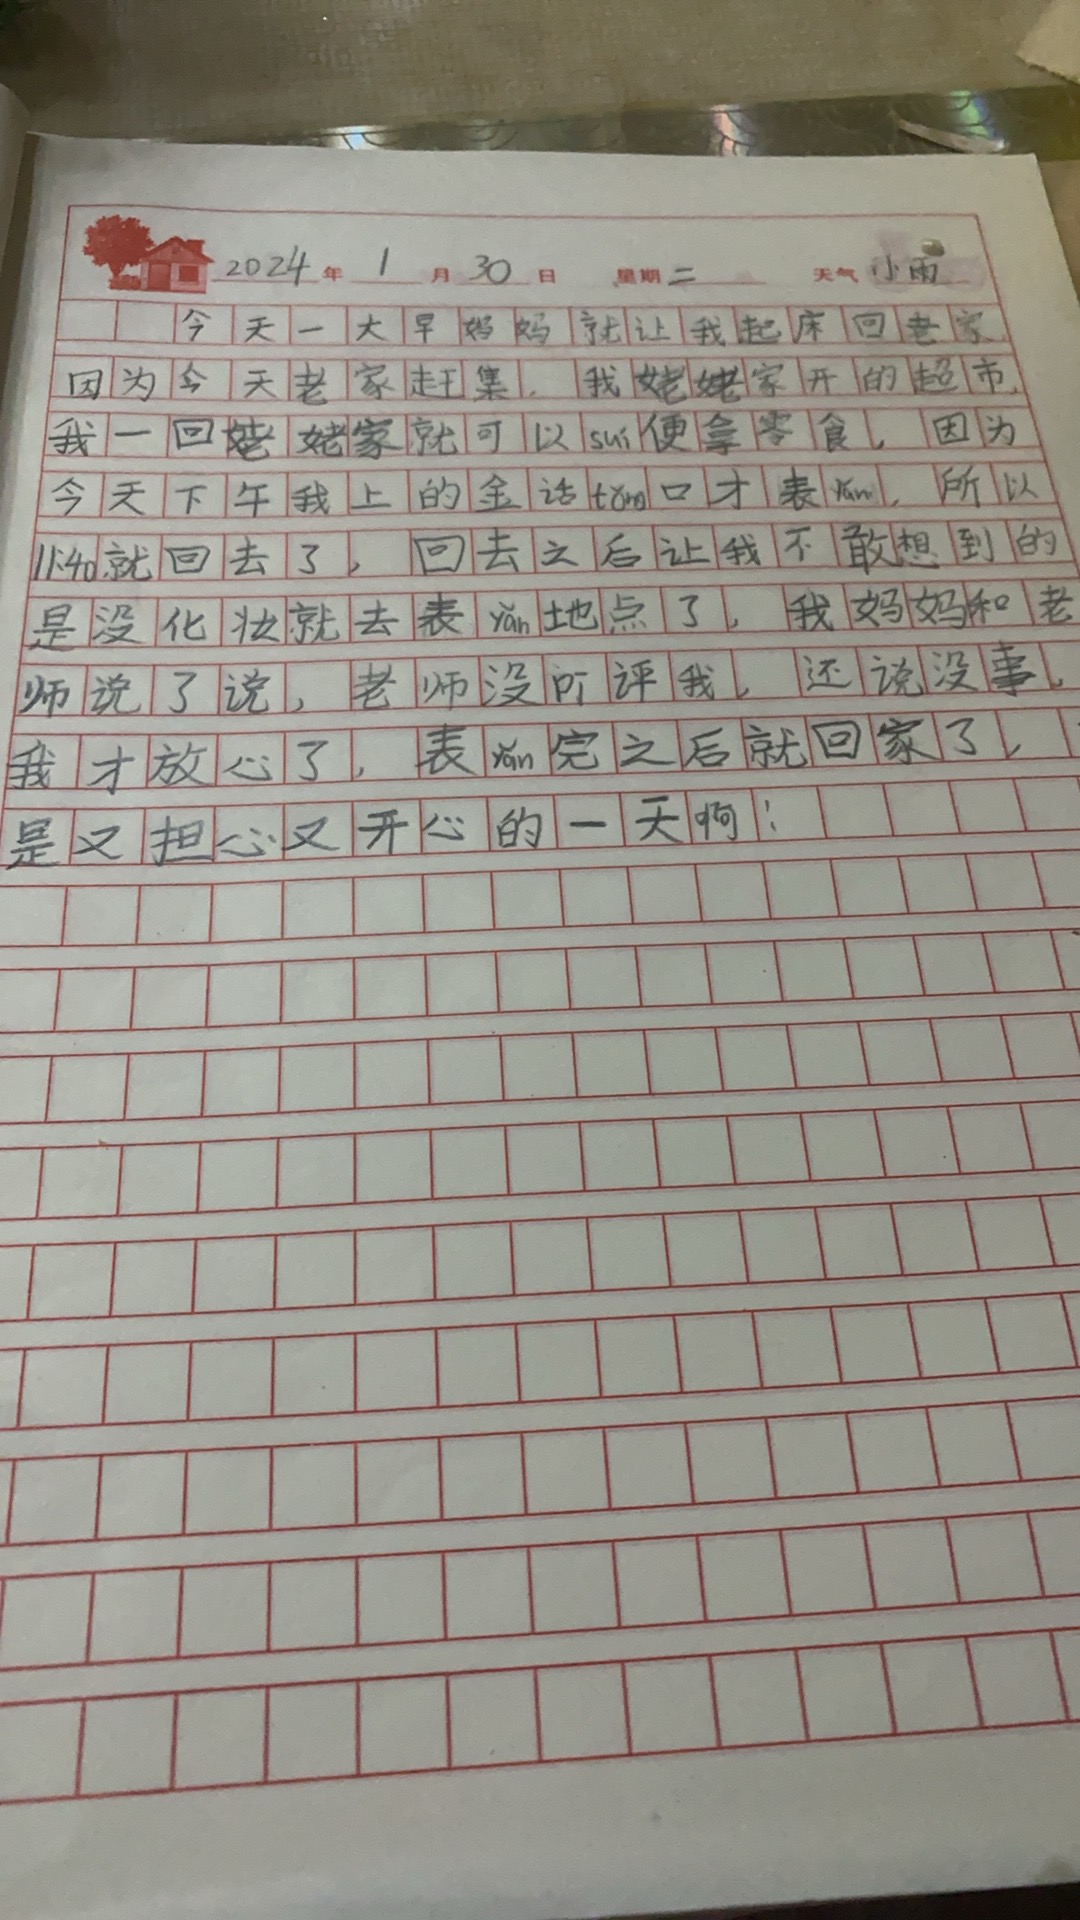 2024年1月30日 星期二 天气小雨
今天一大早妈妈就让我起床回老家
因为今天老家赶集，我姥姥家开的超市，
我一回姥姥家就可以suí便拿零食，因为
今天下午我上的金话tǒng口才表yǎn，所以
11:40就回去了，回去之后让我不敢想到的
是没化妆就去表yǎn地点了，我妈妈和老
师说了说，老师没pī评我，还说没事，
我才放心了，表yǎn完之后就回家了，
是又担心又开心的一天啊！